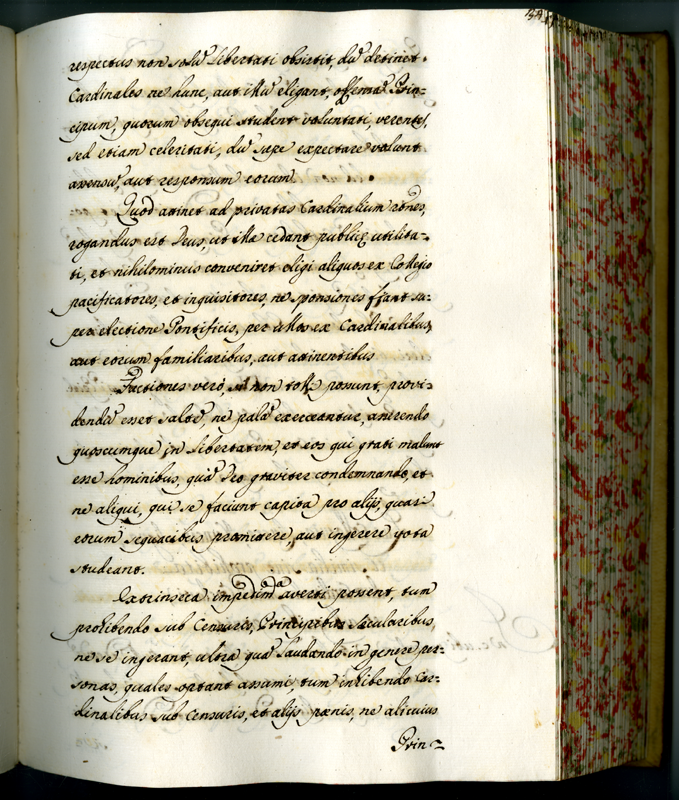 respectus non solũ libertati obsistit, dũ detinet
Cardinales ne hunc, aut illũ eligant, offensaȝ Prin-
cipum, quorum obsequi student voluntati, verentes,
sed etiam celeritati, dũ sæpe expectare volunt
assensũ, aut responsum eorum.
Quod attinet ad privatas Cardinalium rõnes,
rogandus est Deus, ut illæ cedant publicę utilita-
ti, et nihilominus conveniret eligi aliquos ex Collegio
pacificatores, et inquisitores, ne sponsiones fiant su-
per electione Pontificis, per illos ex Cardinalibus,
aut eorum familiaribus, aut attinentibus
Factiones verò, si non tolli possunt, provi-
dendũ esset saltẽ, ne palã exerceantur, asserendo
quoscumque in libertatem, et eos qui grati malunt
esse hominibus, quã Deo graviter condemnando, et
ne aliqui, qui se faciunt capita pro alijs, quasi
eorum sequacibus promittere, aut ingerere vota
studeant.
Extrinseca impedimta averti possent, tum
prohibendo sub Censuris, Principibus sæcularibus,
ne se ingerant, ultra quã laudando in genere per-
sonas, quales optant assumi, tum inhibendo Car-
dinalibus sub Censuris, et alijs pœnis, ne alicuius
Prin-